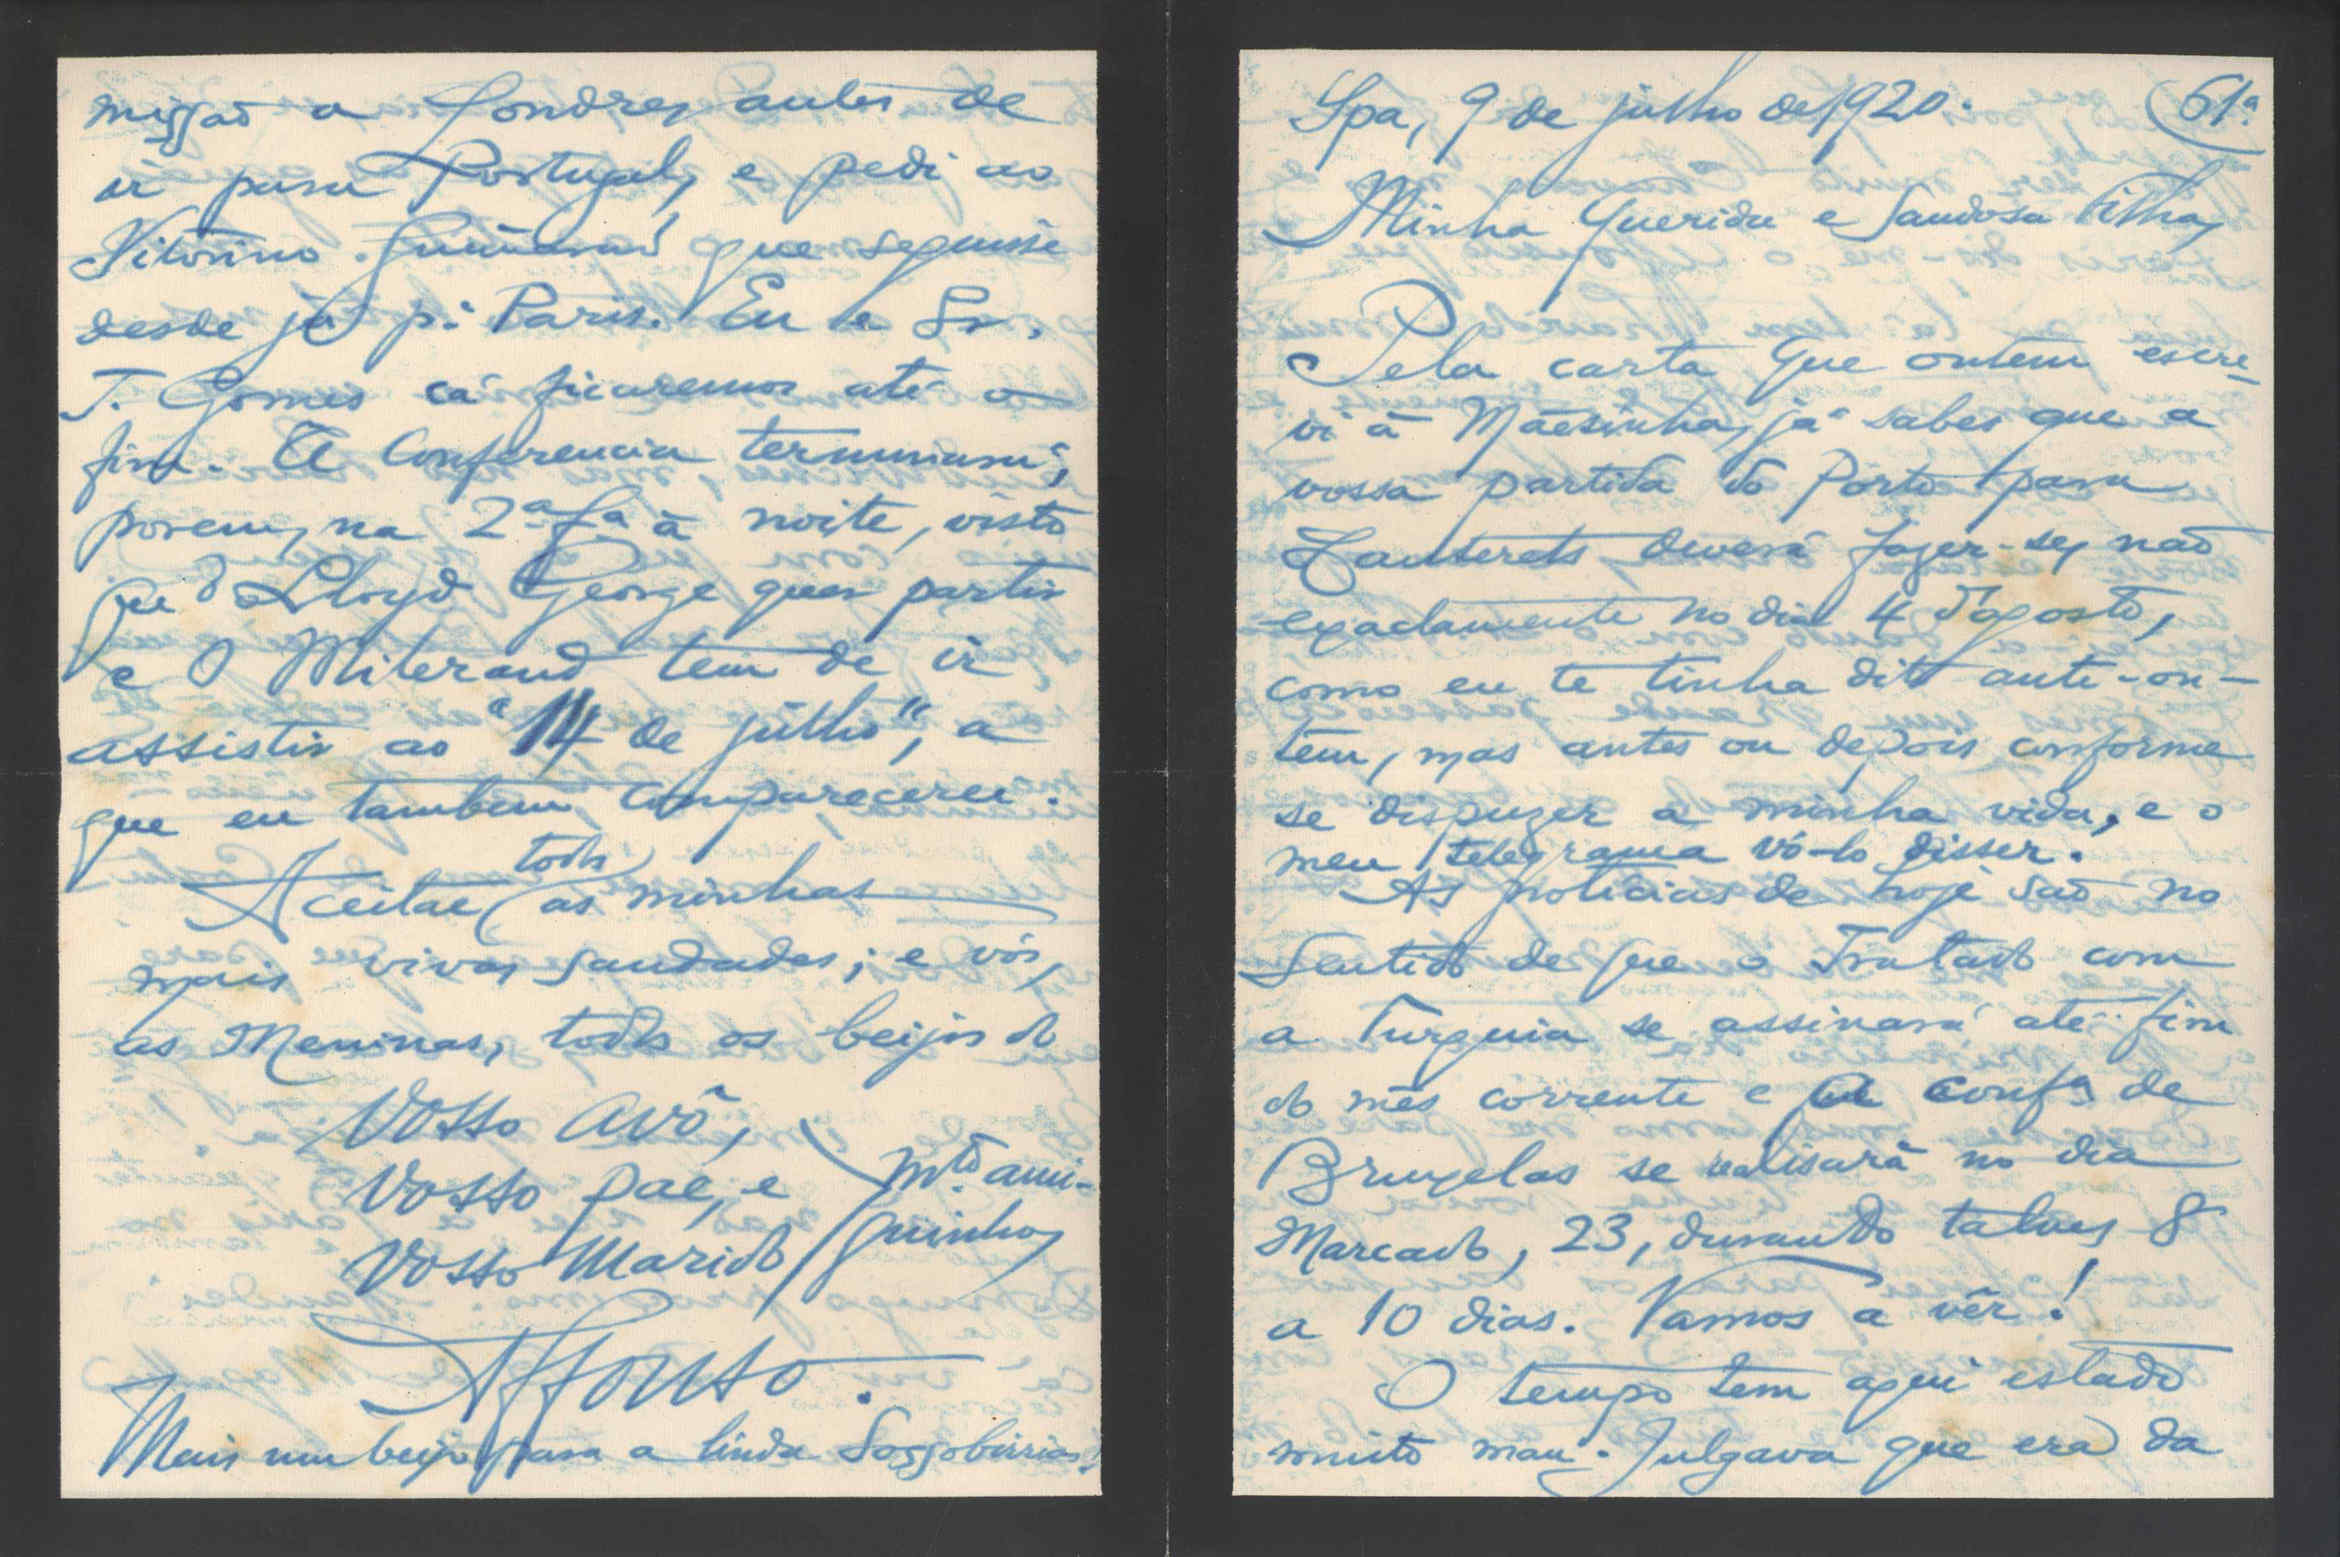 Spa, 9 de julho de 1920.
61ª
Minha Querida e Saudosa Filha,
Pela carta que ontem escre-
vi á Mãesinha, já sabes que a
vossa partida do Porto para
Cauterets deverá fazer-se, não
exactamente no dia 4 d'agosto,
como eu te tinha dito ante-on-
tem, mas antes ou depois conforme
se dispuzer a minha vida, e o
meu telegrama vô-lo disser.
As noticias de hoje são no
sentido de que o Tratado com
a Turquia se assinará até fim
do mês corrente e a confª de
Bruxelas se realisará no dia
marcado, 23, durando talves 8
a 10 dias. Vamos a vêr!
O tempo tem aqui estado
muito mau. Julgava que era da
missão a Londres antes de
ir para Portugal, e pedi ao
Vitorino Guimarães que seguisse
desde já p.ª Paris. Eu e Sr.
T. Gomes cá ficaremos até o
fim. A Conferencia terminará,
porem, na 2ª fª á noite, visto
que o Lloyd George quer partir
e o Miterand tem de ir
assistir ao "14 de julho", a
que eu tambem comparecerei.
Aceitae todas as minhas
mais vivas saudades; e vós,
as Meninas, todos os beijos do
Vosso Avô,
Vosso pae, e
Vosso Marido
mtº. ami-
guinho,
Affonso.
Mais um beijo para a linda